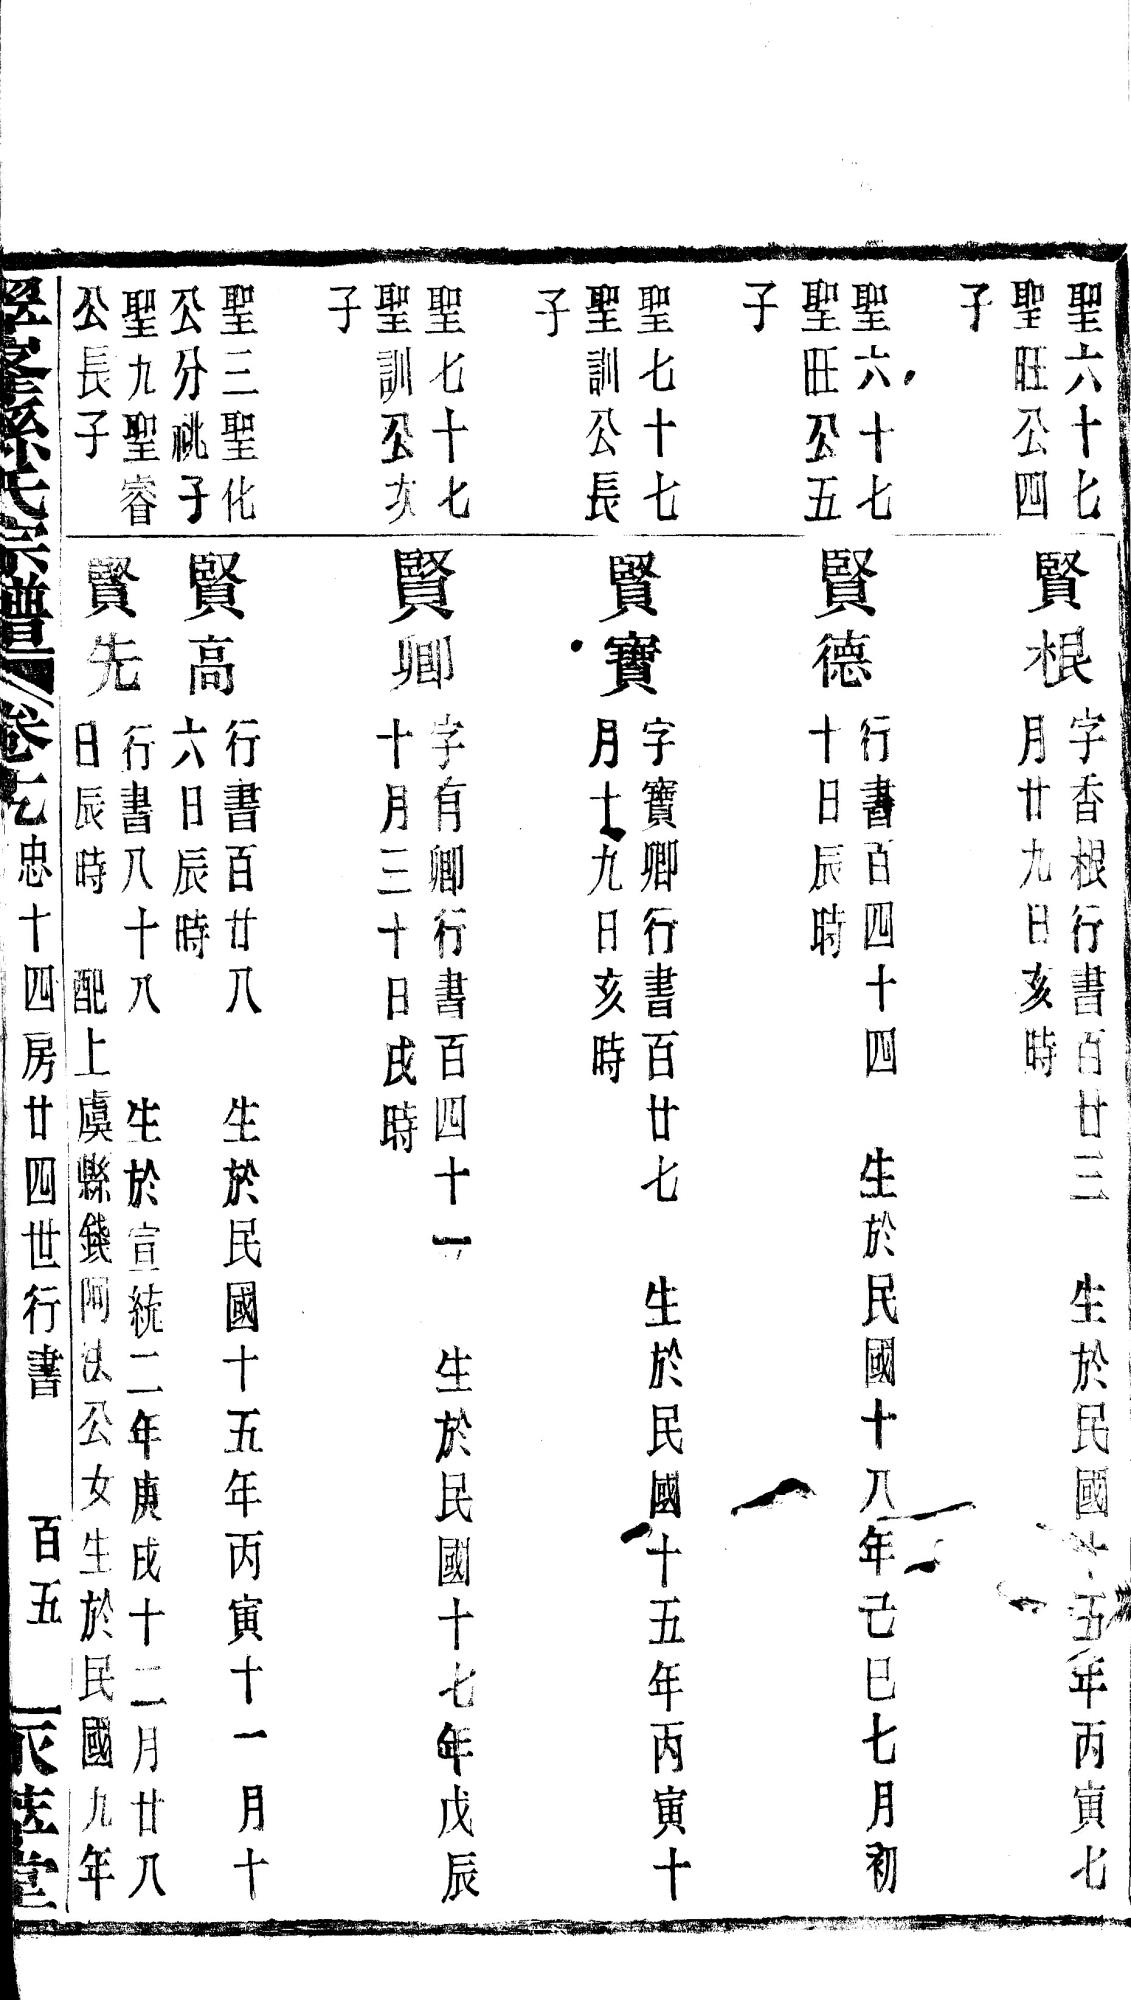 聖六十七
聖旺公四
子
賢根
字香根行書百廿三　生於民國十五年丙寅七
月廿九日亥時
聖六十七
聖旺公五
子
賢德
行書百四十四　生於民國十八年己巳七月初
十日辰時
聖七十七
聖訓公長
子
賢寶
字寶卿行書百廿七　生於民國十五年丙寅十
月十九日亥時
聖七十七
聖訓公次
子
賢卿
字有卿行書百四十一　生於民國十七年戊辰
十月三十日戌時
聖三聖化
公分祧子
賢高
行書百廿八　生於民國十五年丙寅十一月十
六日辰時
聖九聖睿
公長子
賢先
行書八十八　生於宣統二年庚戌十二月廿八
日辰時　配上虞縣錢阿法公女生於民國九年
孫氏宗譜　卷七　忠十四房廿四世行書　百五　堂